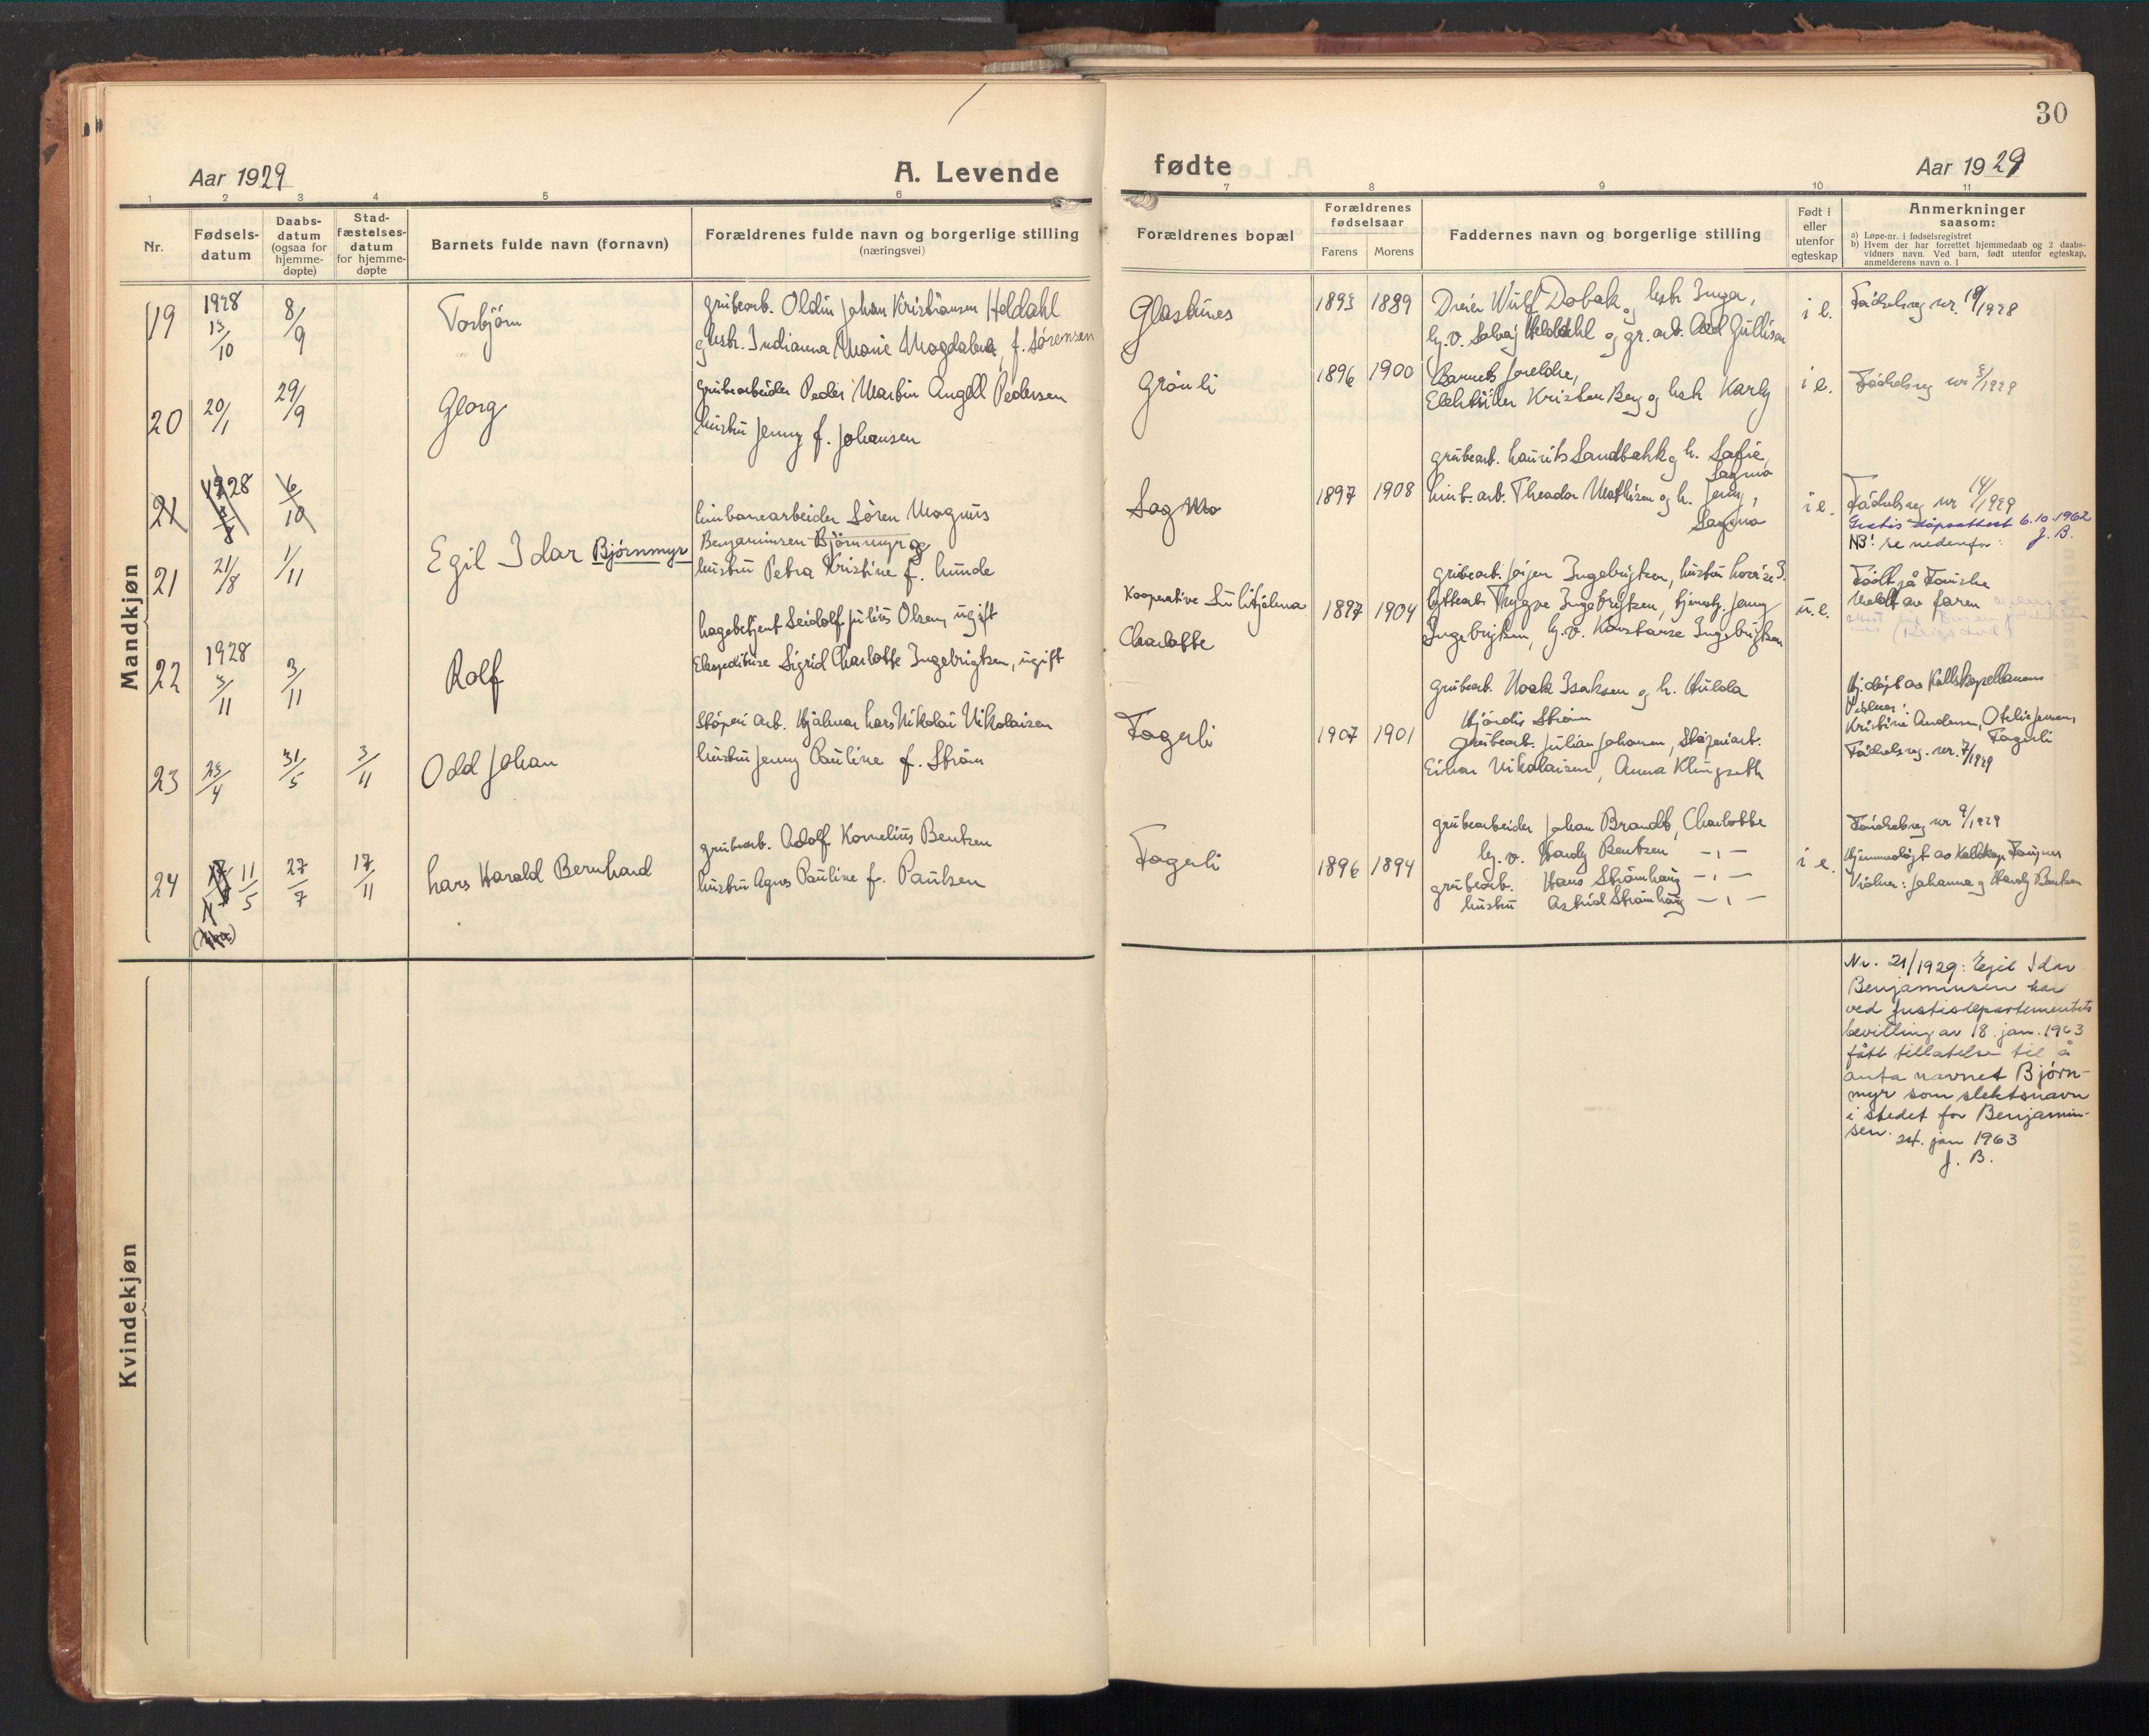 30
Aar 1929
A. Levende
fødte
Aar 1929
1 2 3 4 5 6 7 8 9 10 11
Nr.
Fødsels-
datum
Daabs-
datum
(ogsaa for
hjemme-
døpte)
Stad-
fæstelses-
datum
for hjemme-
døpte
Barnets fulde navn (fornavn)
Forældrenes fulde navn og borgerlige stilling
(næringsvei)
Forældrenes bopæl
Forældrenes
fødselsaar
Farens Morens
Faddernes navn og borgerlige stilling
Født i
eller
utenfor
egteskap
Anmerkninger
saasom:
a) Løpe-nr. i fødselsregistret
b) Hvem der har forrettet hjemmedaab og 2 daabs-
vidners navn. Ved barn, født utenfor egteskap,
anmelderens navn o. l
Mandkjøn
19 1928 13/10 8/9 Torbjörn
grubearb. Oldin Johan Kristiansen Heldahl
og hstr. Indianna Marie Magdalena, f. Sørensen
Glastunes 1893 1889
Dreier Wulf Dobak og hstr Inga,
i e.
Fødselsreg nr. 18/1928
20 20/1 29/9 Georg
Grubearbeider Peder Martin Angell Pedersen
hustru Jenny f. Johansen
Grönli 1896 1900
Barnets foreldre,
Kristen Berg og hstr Karly
i e.
Fødselsreg nr 3/1929
21 1928 3/8 6/10
21 21/8 1/11 Egil Idar Bjørnmyr
linbanearbeider Sören Magnus
Benjaminsen Bjørnmyr og
hustru Petra Kristine f. Lunde
Sagmo 1897 1908
grubearb. Laurits Sandbakk og h. Sofie,
Sagmo
linb. arb. Theodor Mathisen og h. Jenny,
Sagmo
i e.
Fødselsreg nr 14/1929
Gratis dåpsattest 6.10.1962
J. B.
NB! se nedenfor:
22 1928 3/11 3/11 Rolf
lagerbetjent Leidolf Julius Olsen, ugift
Ekspeditrise Sigrid Charlotte Ingebrigtsen, ugift
Kooperative Sulitjelma
Charlotte
1897 1904
grubearb. Jörgen Ingebrigtsen, hustru Lovise I.
Trygve Ingebrigtsen, tjenestp. Jenny
Ingebrigtsen, Konstanse Ingebrigtsen
u. e.
Født på Fauske
Meldt av faren
23 23/4 31/5 3/11 Odd Johan
Støperi arb. Hjalmar Lars Nikolai Nikolaisen
hustru Jenny Pauline f. Ström
Fagerli 1907 1901
grubearb. Noak Isaksen og h. Hulda
Hjördis Ström
grubearb. Julian Johansen, Støperiarb.
Einar Nikolaisen, Anna Klungseth
Hj.døpt av Kallskapellanen
Vidner:
Kristine Andersen, Otelie Jensen,
Fagerli
Fødselsreg. nr. 7/1929
24 11/5 27/7 17/11 Lars Harald Bernhard
grubearb. Adolf Kornelius Bentsen
hustru Agnes Pauline f. Paulsen
Fagerli 1896 1894
grubearbeider Johan Brandt, Charlotte
Hardy Bentsen —„—
grubearb. Hans Strömhaug —„—
hustru Astrid Strömhaug —„—
i e.
Fødselsreg nr 9/1929
Hjemmedøpt av Kallskap
Vidner: Johanna og Hardy Bentsen
Nr. 21/1929: Egil Idar
Benjaminsen har
ved Justisdepartementets
bevilling av 18. jan. 1963
fått tillatelse til å
anta navnet Bjørn-
myr som slektsnavn
i stedet for Benjamin-
sen. 24. jan 1963
J. B.
Kvindekjøn